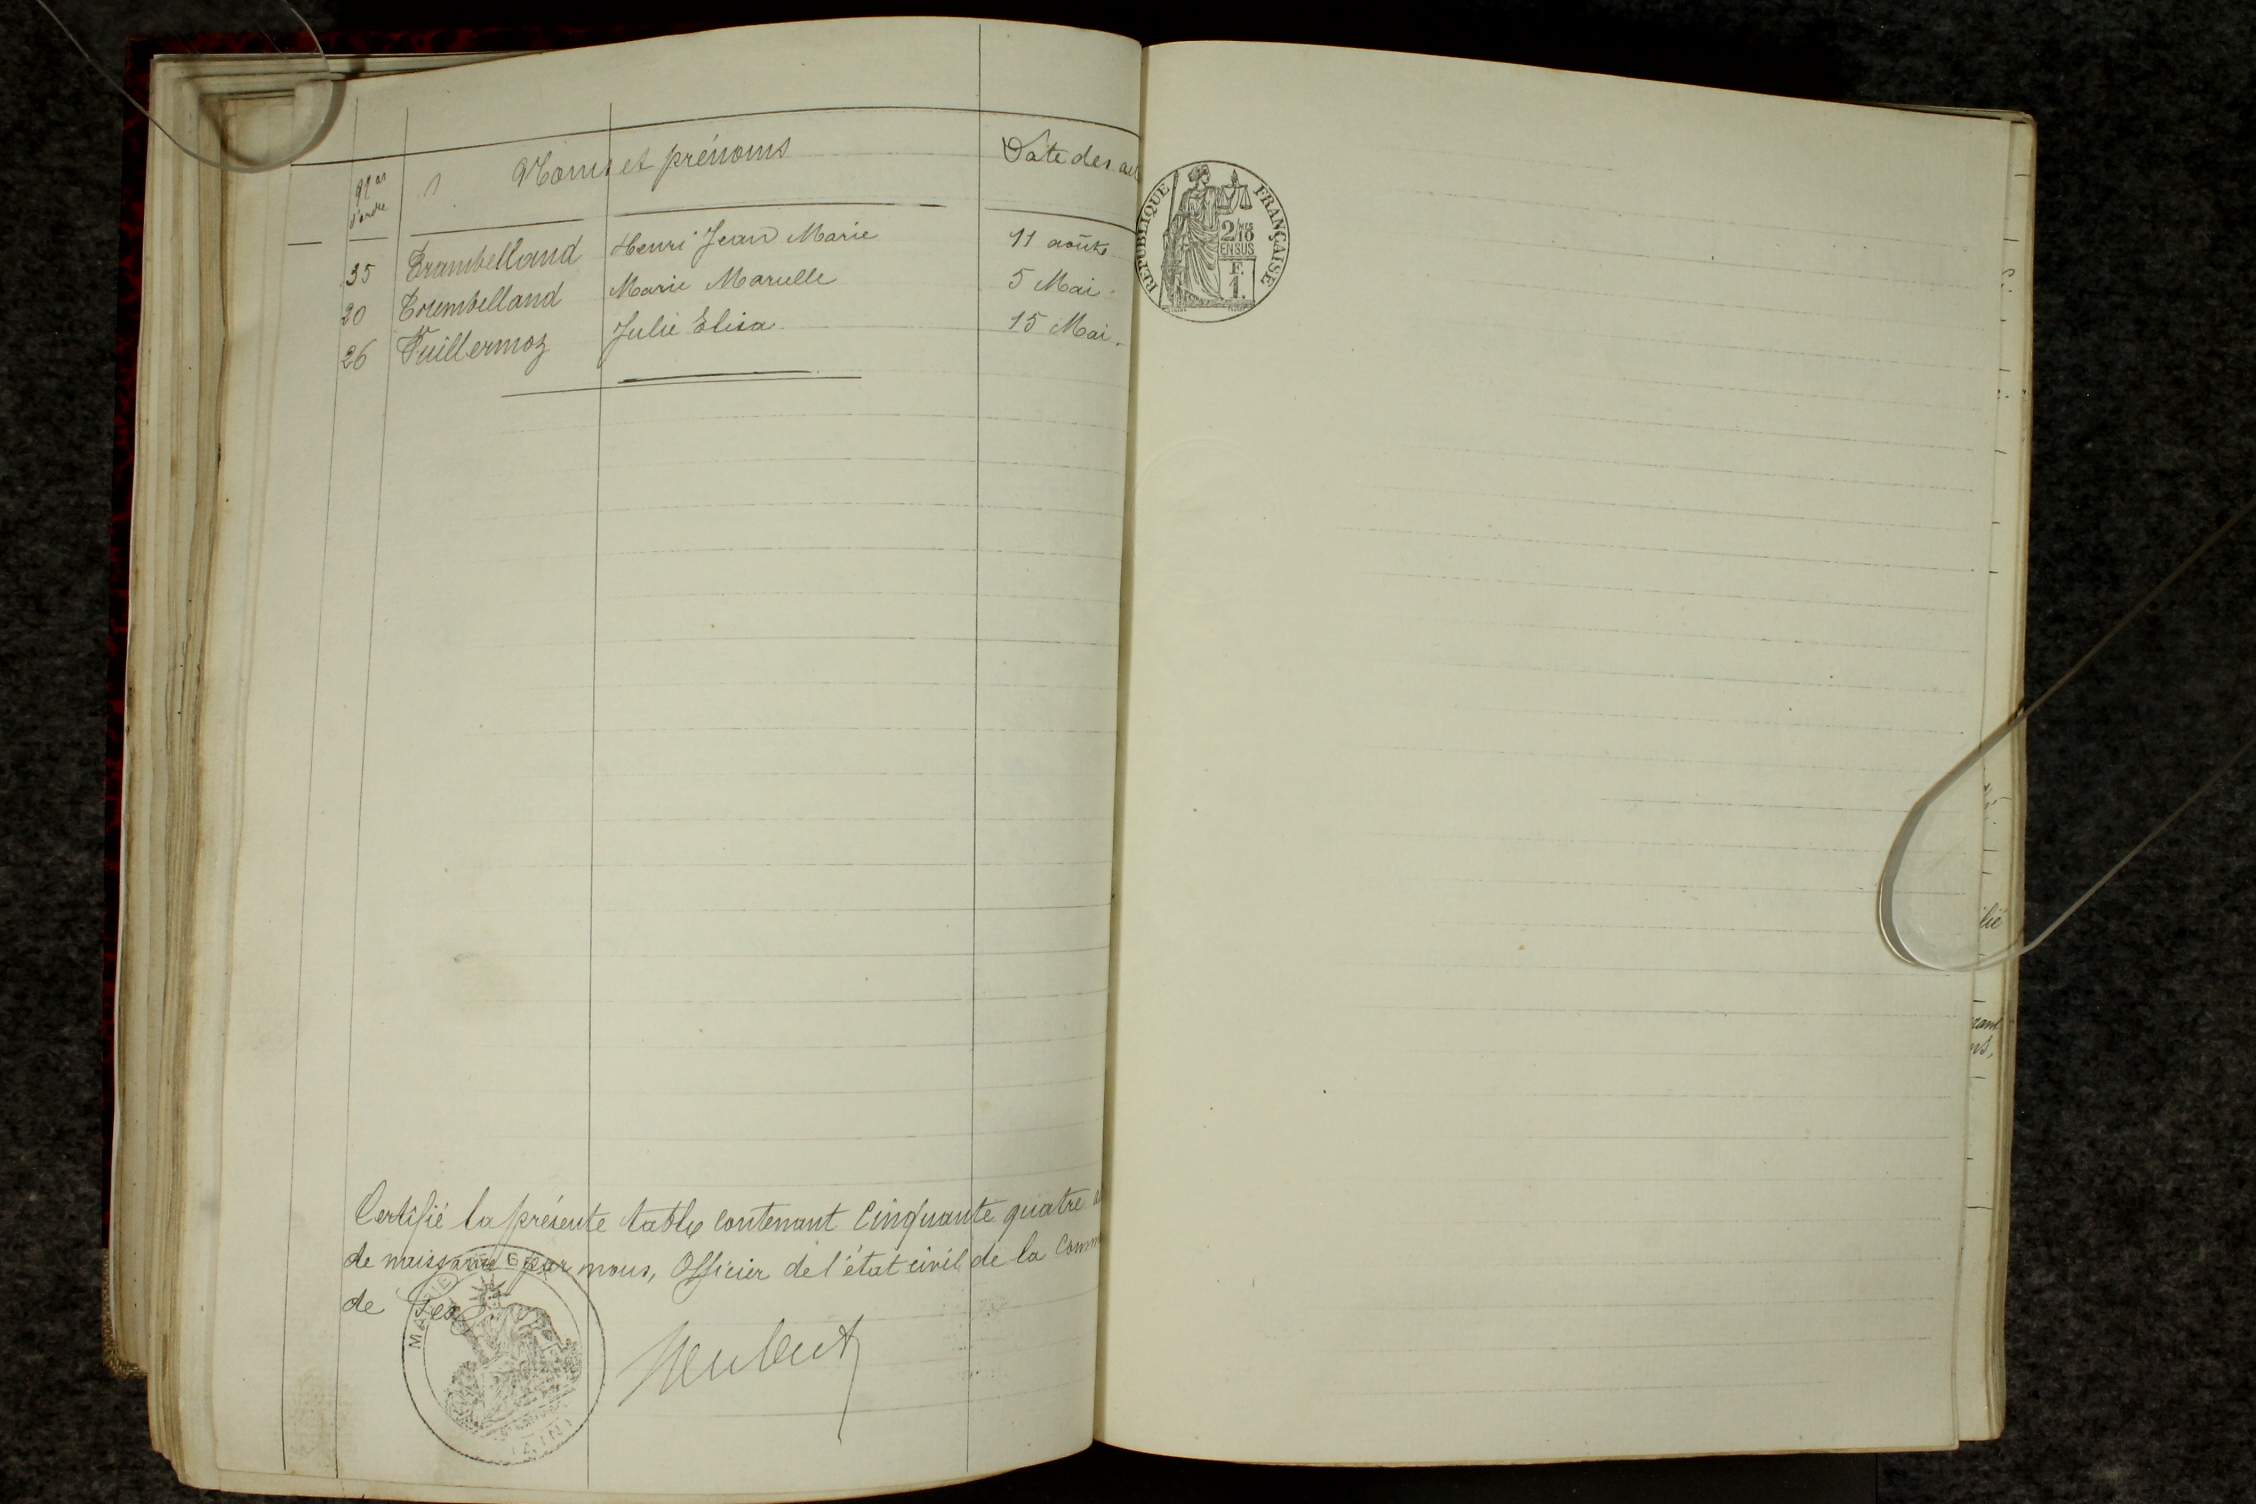 Nos d'ordre Noms et prénoms Date des
35 Trambelland Henri Jean Marie 11 août
20 Trembelland Marie Marcelle 5 Mai.
26 Vuillermoz Julie Elisa 15 Mai.
Certifié la présente table contenant Cinquante quatre
de naissance par nous, Officier de l'état civil de la Comm
de Gex
MAIRIE DE GEX
(AIN)
RÉPUBLIQUE FRANÇAISE
2/10 EN SUS
F.
1.